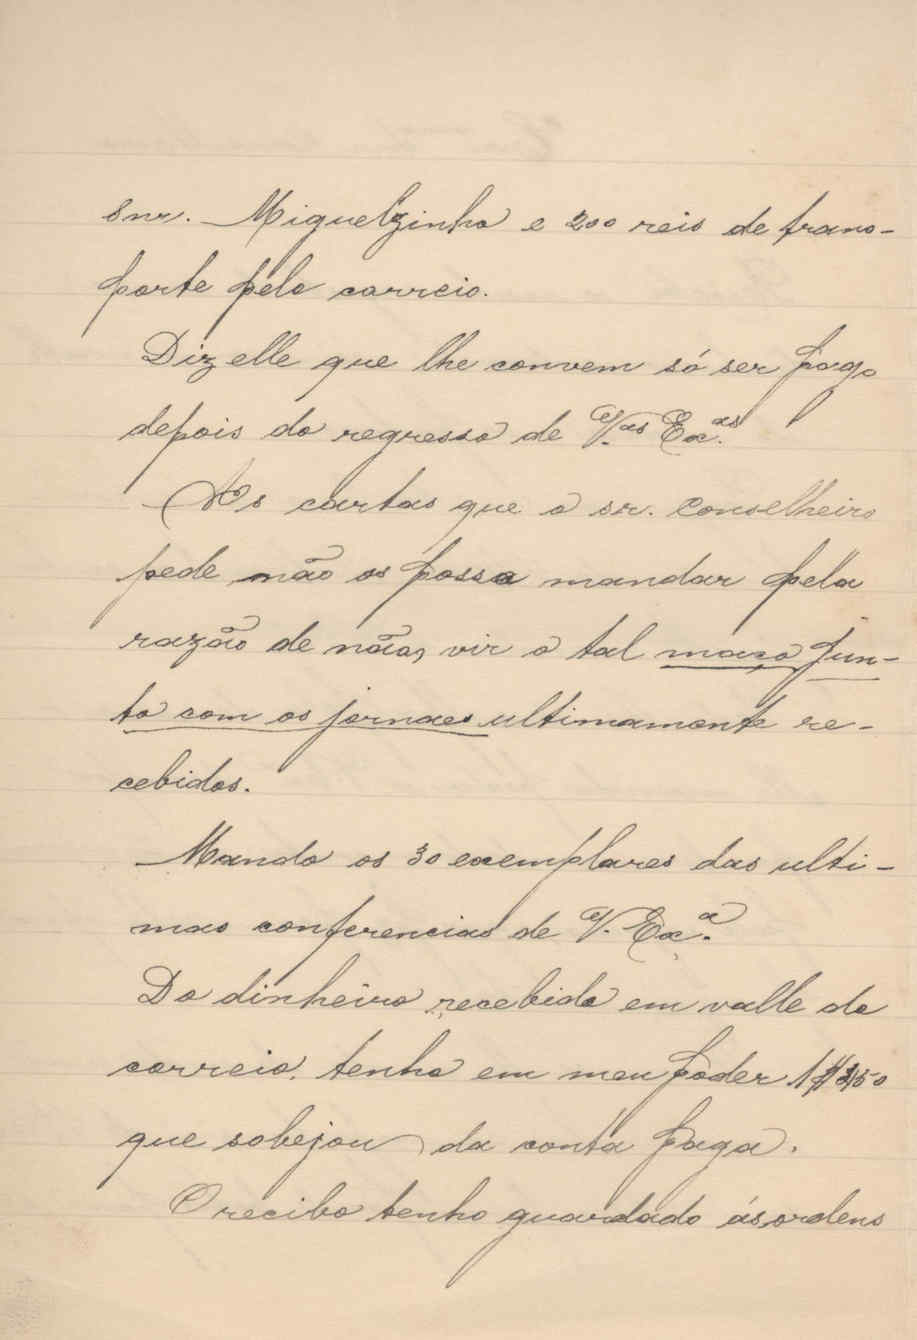 Snr. Miguelzinho e 200 reis de trans-
porte pelo correio.
Diz elle que lhe convem só ser pago
depois do regresso de V.as Ex.as
As cartas que o sr. Conselheiro
pede não os posso mandar pela
razão de não, vir o tal maço jun-
to com os jornaes ultimamente re-
cebidos.
Mando os 30 exemplares das ulti-
mas conferencias de V. Ex.a
Do dinheiro recebido em valle do
correio. tenho em meu poder
que sobejou da conta paga.
O recibo tenho guardado ás ordens